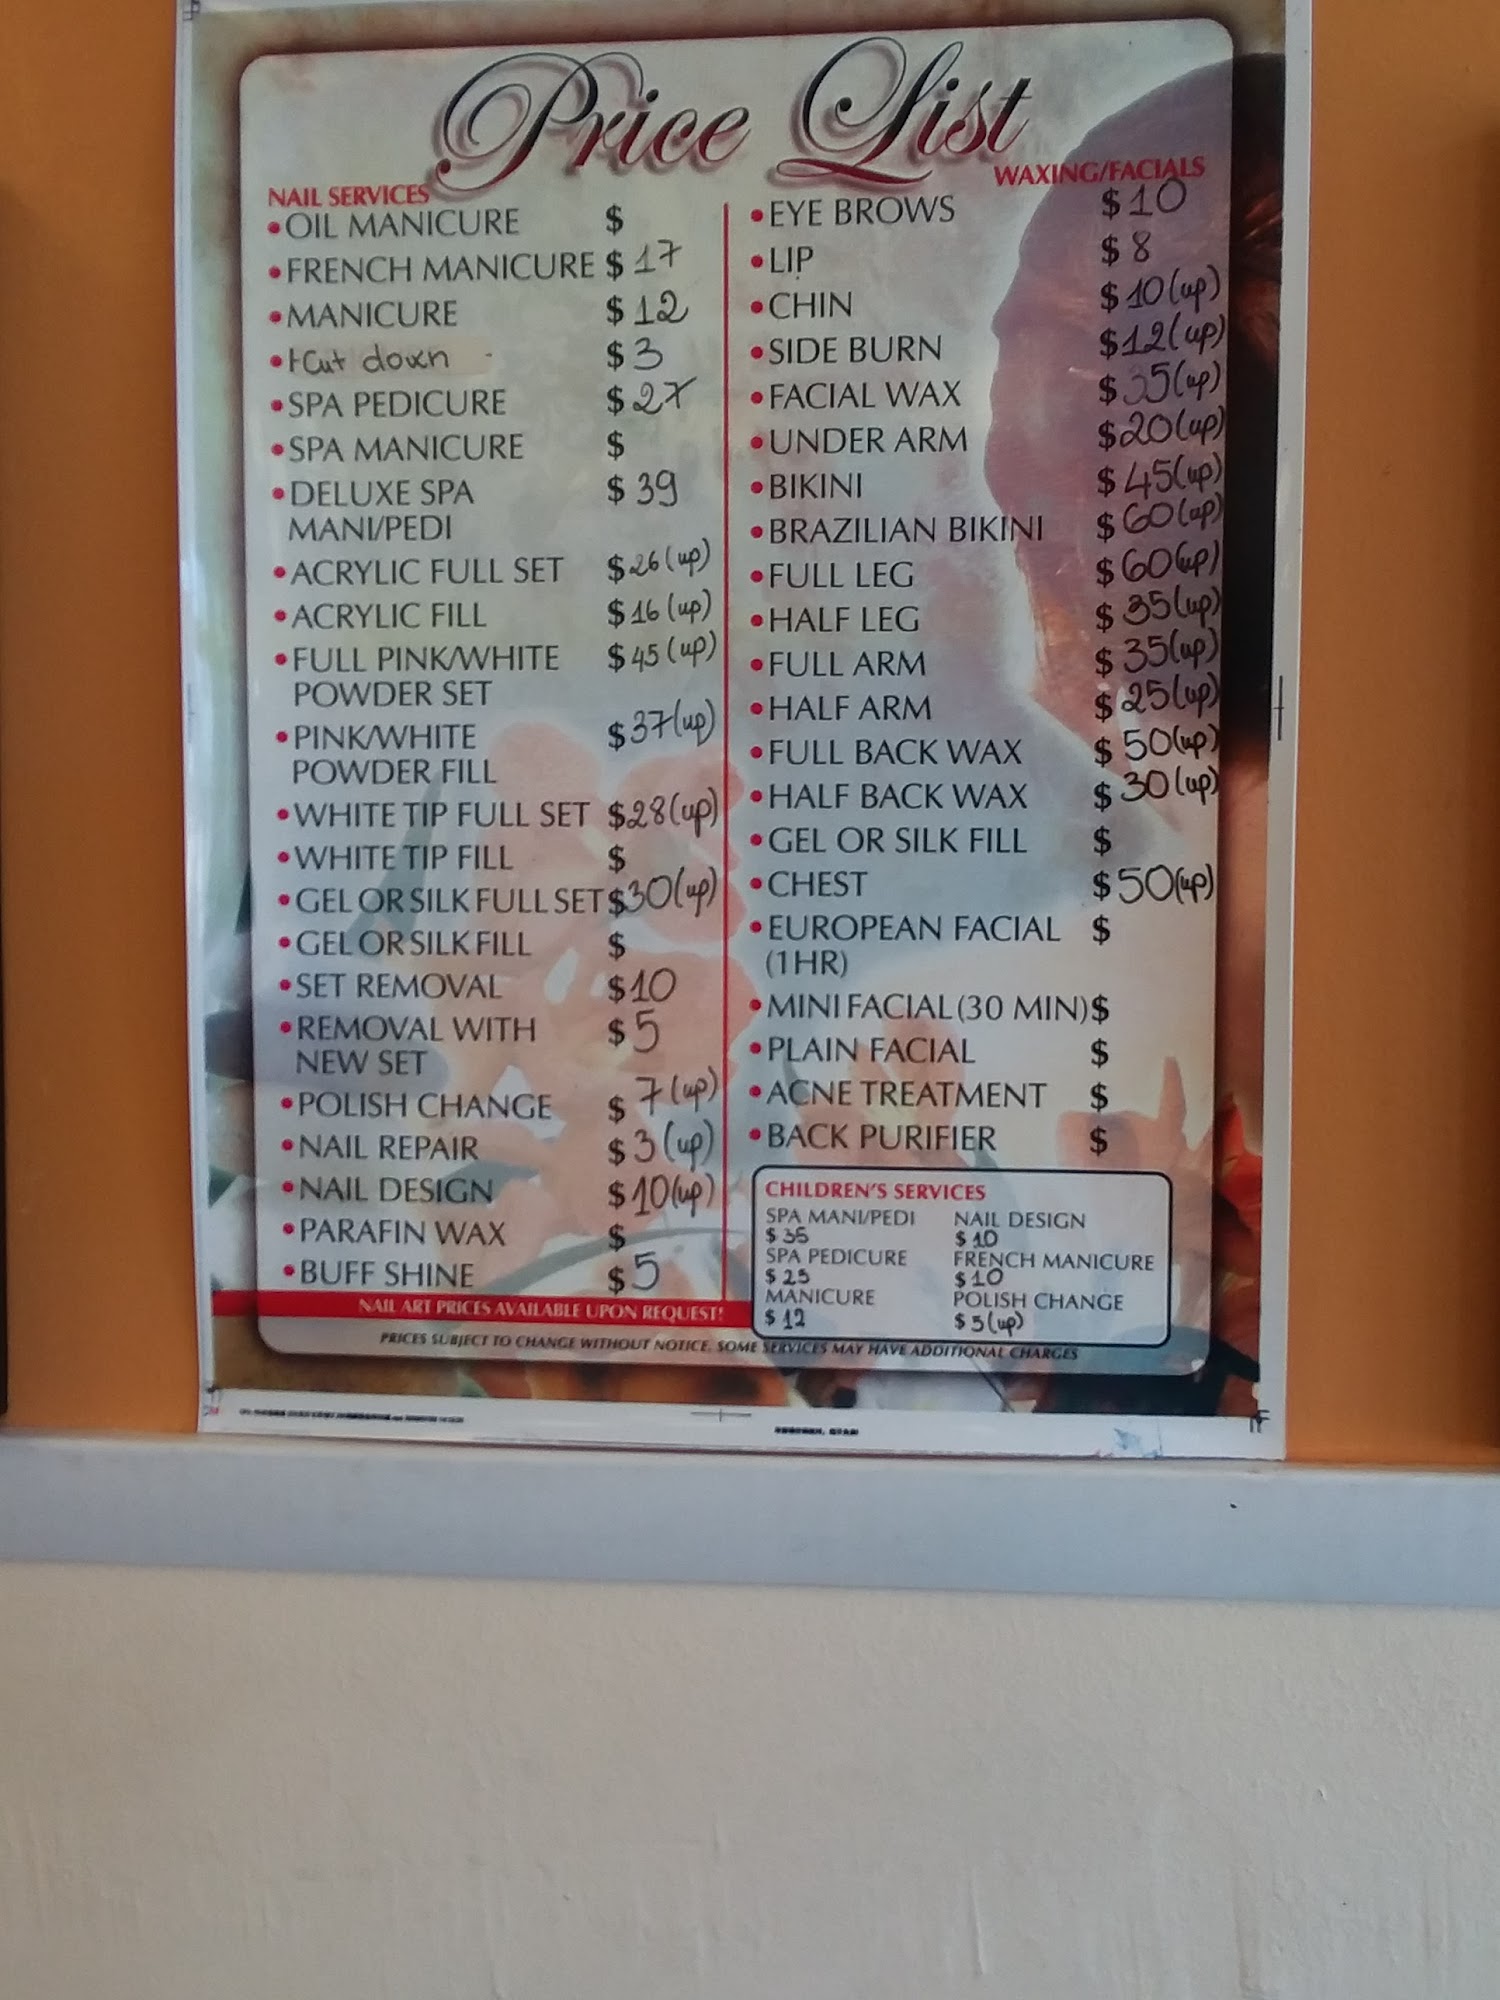 Price List
NAIL SERVICES
• OIL MANICURE $
• FRENCH MANICURE $ 17
• MANICURE $ 12
• Cut down $ 3
• SPA PEDICURE $ 27
• SPA MANICURE $
• DELUXE SPA $ 39
MANI/PEDI
• ACRYLIC FULL SET $ 26 (up)
• ACRYLIC FILL $ 16 (up)
• FULL PINK/WHITE $ 45 (up)
POWDER SET
• PINK/WHITE $ 37 (up)
POWDER FILL
• WHITE TIP FULL SET $ 28 (up)
• WHITE TIP FILL $
• GEL OR SILK FULL SET $ 30 (up)
• GEL OR SILK FILL $
• SET REMOVAL $ 10
• REMOVAL WITH $ 5
NEW SET
• POLISH CHANGE $ 7 (up)
• NAIL REPAIR $ 3 (up)
• NAIL DESIGN $ 10 (up)
• PARAFIN WAX $
• BUFF SHINE $ 5
NAIL ART PRICES AVAILABLE UPON REQUEST!
WAXING/FACIALS
• EYE BROWS $ 10
• LIP $ 8
• CHIN $ 10 (up)
• SIDE BURN $ 12 (up)
• FACIAL WAX $ 35 (up)
• UNDER ARM $ 20 (up)
• BIKINI $ 45 (up)
• BRAZILIAN BIKINI $ 60 (up)
• FULL LEG $ 60 (up)
• HALF LEG $ 35 (up)
• FULL ARM $ 35 (up)
• HALF ARM $ 25 (up)
• FULL BACK WAX $ 50 (up)
• HALF BACK WAX $ 30 (up)
• GEL OR SILK FILL $
• CHEST $ 50 (up)
• EUROPEAN FACIAL $
(1HR)
• MINI FACIAL (30 MIN) $
• PLAIN FACIAL $
• ACNE TREATMENT $
• BACK PURIFIER $
CHILDREN'S SERVICES
SPA MANI/PEDI NAIL DESIGN
$ 35 $ 10
SPA PEDICURE FRENCH MANICURE
$ 25 $ 10
MANICURE POLISH CHANGE
$ 12 $ 5 (up)
PRICES SUBJECT TO CHANGE WITHOUT NOTICE. SOME SERVICES MAY HAVE ADDITIONAL CHARGES